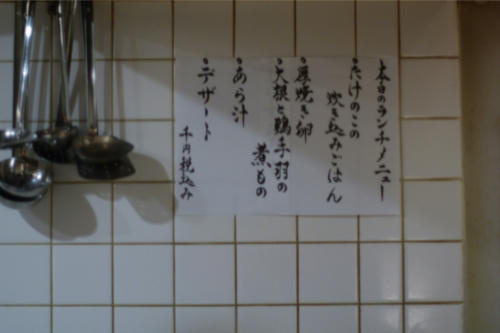 本日のランチメニュー
・たけのこの
炊き込みごはん
・厚焼き卵
・大根と鶏手羽の
煮もの
・あら汁
・デザート
千円税込み